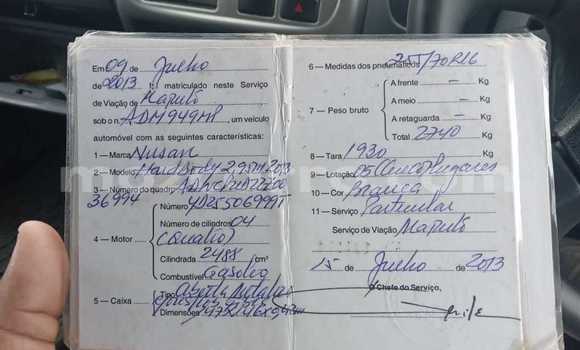 Em 09 de Julho
de 2013 foi matriculado neste Serviço
de Viação de Maputo
sob o n.º ADM949MP, um veículo
automóvel com as seguintes características:
1 — Marca Nissan
2 — Modelo Hardbody 2,95m 2013
3 — Número do quadro
36994
4 — Motor
Número YD255069995T
Número de cilindros 04
(Quatro)
Cilindrada 2488 cm³
Combustível Gasóleo
5 — Caixa
Tipo Aberta Metálica
Dimensões
6 — Medidas dos pneumáticos 255/70R16
7 — Peso bruto
A frente — Kg
A meio — Kg
A retaguarda — Kg
Total 2740 Kg
8 — Tara 1930 Kg
9 — Lotação 05 (Cinco) lugares
10 — Cor Branca
11 — Serviço Particular
Serviço de Viação Maputo
15 de Julho de 2013
O Chefe do Serviço,